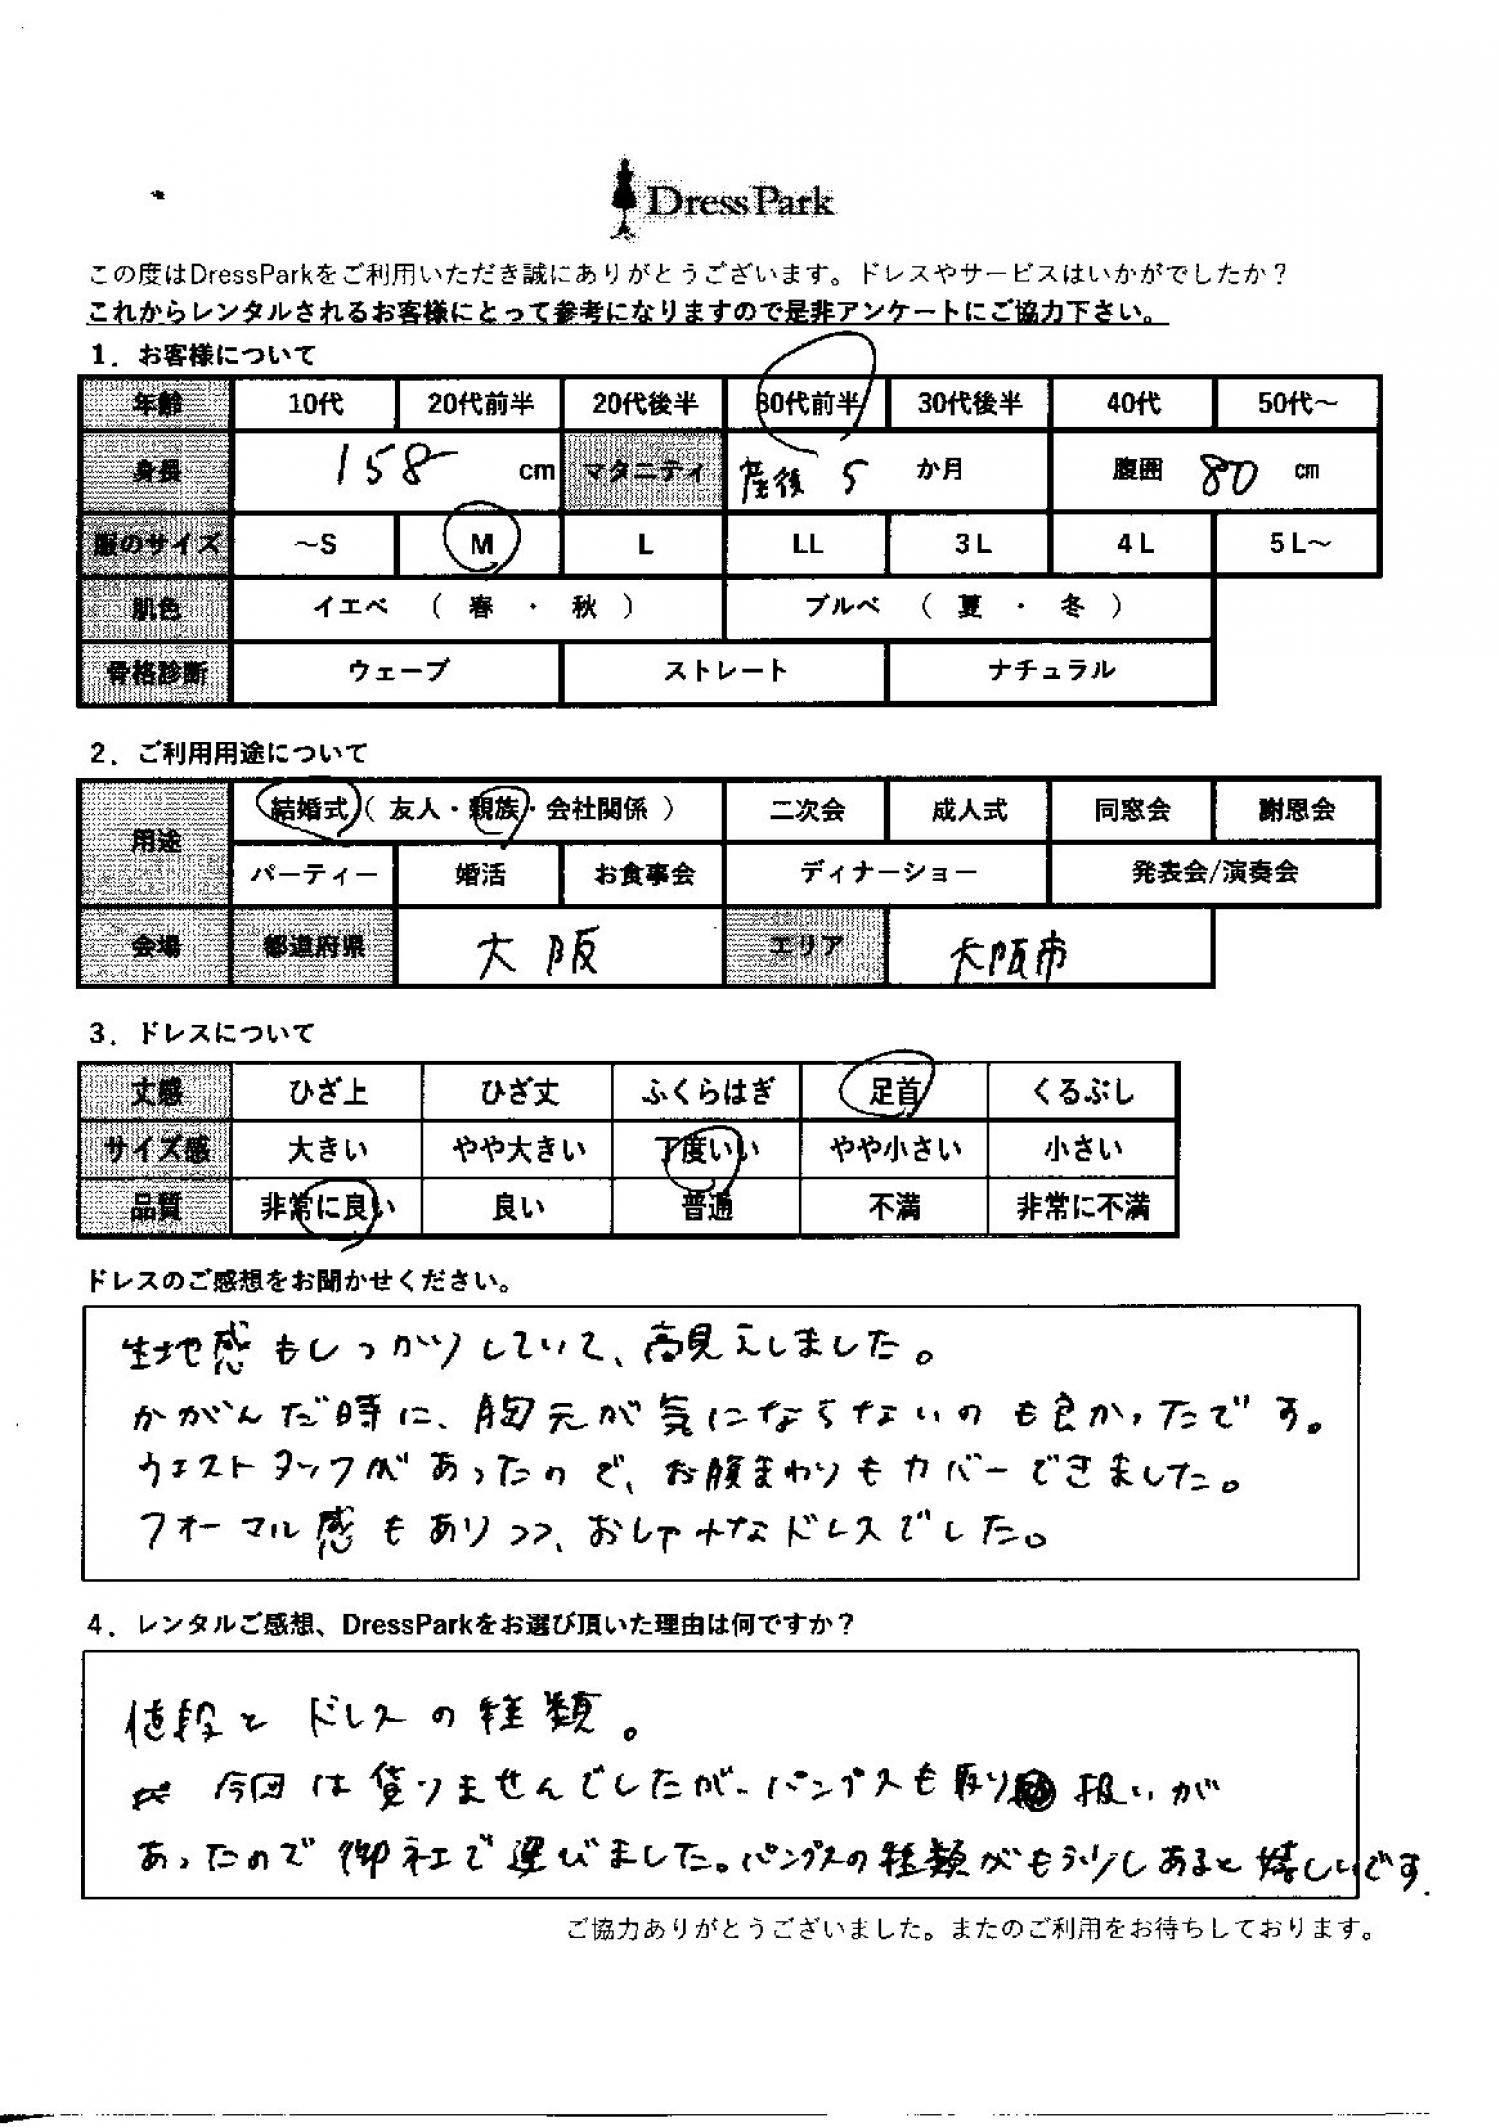 DressPark
この度はDressParkをご利用いただき誠にありがとうございます。ドレスやサービスはいかがでしたか？
これからレンタルされるお客様にとって参考になりますので是非アンケートにご協力下さい。
1．お客様について
年齢 10代 20代前半 20代後半 30代前半 30代後半 40代 50代～
身長 158 cm マタニティ 産後 5 か月 腹囲 80 cm
服のサイズ ～S M L LL 3L 4L 5L～
肌色 イエベ （ 春 ・ 秋 ） ブルベ （ 夏 ・ 冬 ）
骨格診断 ウェーブ ストレート ナチュラル
2．ご利用用途について
用途 結婚式（ 友人・親族・会社関係 ） 二次会 成人式 同窓会 謝恩会
パーティー 婚活 お食事会 ディナーショー 発表会/演奏会
会場 都道府県 大阪 エリア 大阪市
3．ドレスについて
丈感 ひざ上 ひざ丈 ふくらはぎ 足首 くるぶし
サイズ感 大きい やや大きい 丁度いい やや小さい 小さい
品質 非常に良い 良い 普通 不満 非常に不満
ドレスのご感想をお聞かせください。
生地感もしっかりしていて、高見えしました。
かがんだ時に、胸元が気にならないのも良かったです。
ウエストタックがあったので、お腹まわりもカバーできました。
フォーマル感もありつつ、おしゃれなドレスでした。
4．レンタルご感想、DressParkをお選び頂いた理由は何ですか？
値段とドレスの種類。
今回は借りませんでしたが、パンプスも取り扱いが
あったので御社で選びました。パンプスの種類がもう少しあると嬉しいです.
ご協力ありがとうございました。またのご利用をお待ちしております。